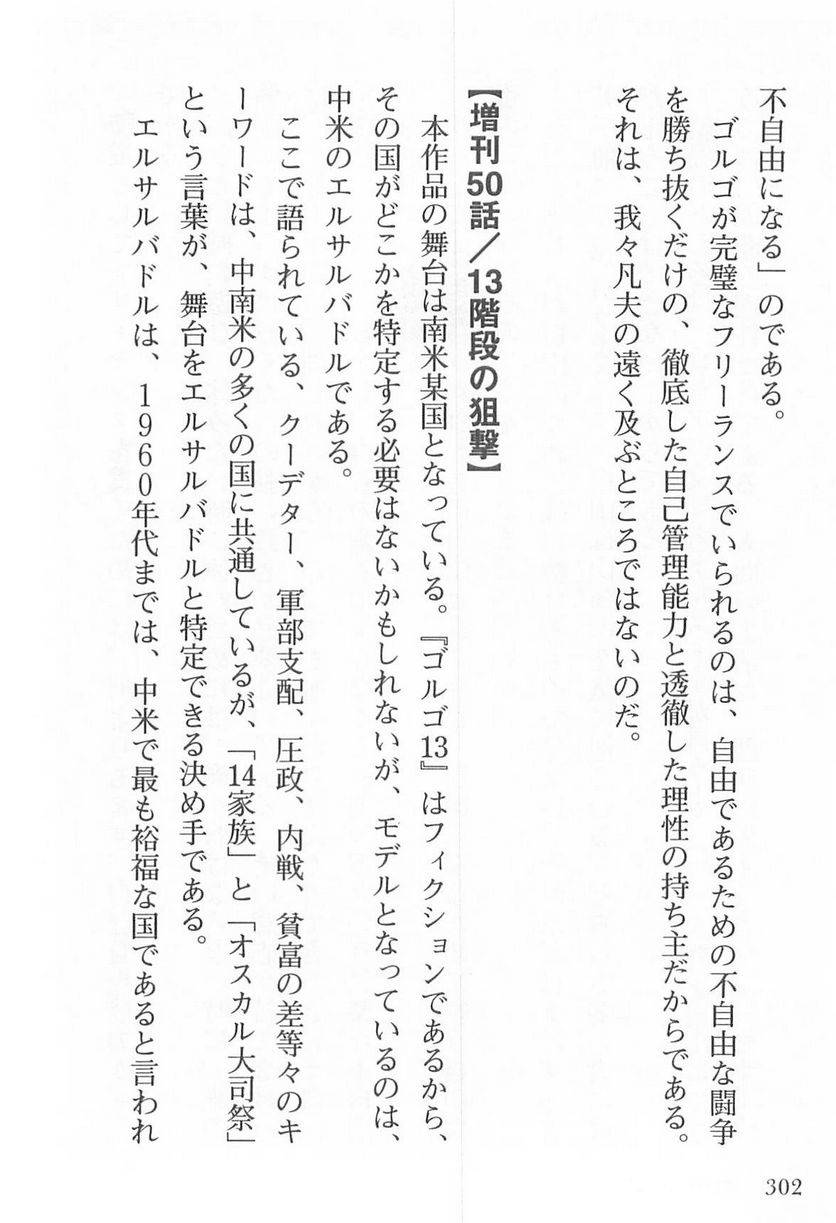 不自由になる」のである。
ゴルゴが完璧なフリーランスでいられるのは、自由であるための不自由な闘争
を勝ち抜くだけの、徹底した自己管理能力と透徹した理性の持ち主だからである。
それは、我々凡夫の遠く及ぶところではないのだ。
【増刊50話／13階段の狙撃】
本作品の舞台は南米某国となっている。『ゴルゴ13』はフィクションであるから、
その国がどこかを特定する必要はないかもしれないが、モデルとなっているのは、
中米のエルサルバドルである。
ここで語られている、クーデター、軍部支配、圧政、内戦、貧富の差等々のキ
ーワードは、中南米の多くの国に共通しているが、「14家族」と「オスカル大司祭」
という言葉が、舞台をエルサルバドルと特定できる決め手である。
エルサルバドルは、1960年代までは、中米で最も裕福な国であると言われ
302